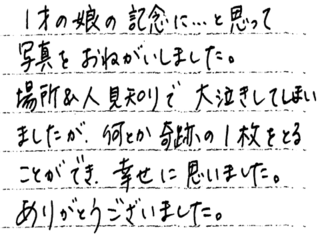 1才の娘の記念に…と思って
写真をおねがいしました。
場所&人見知りで 大泣きしてしまい
ましたが、何とか奇跡の1枚をとる
ことができ、幸せに思いました。
ありがとうございました。